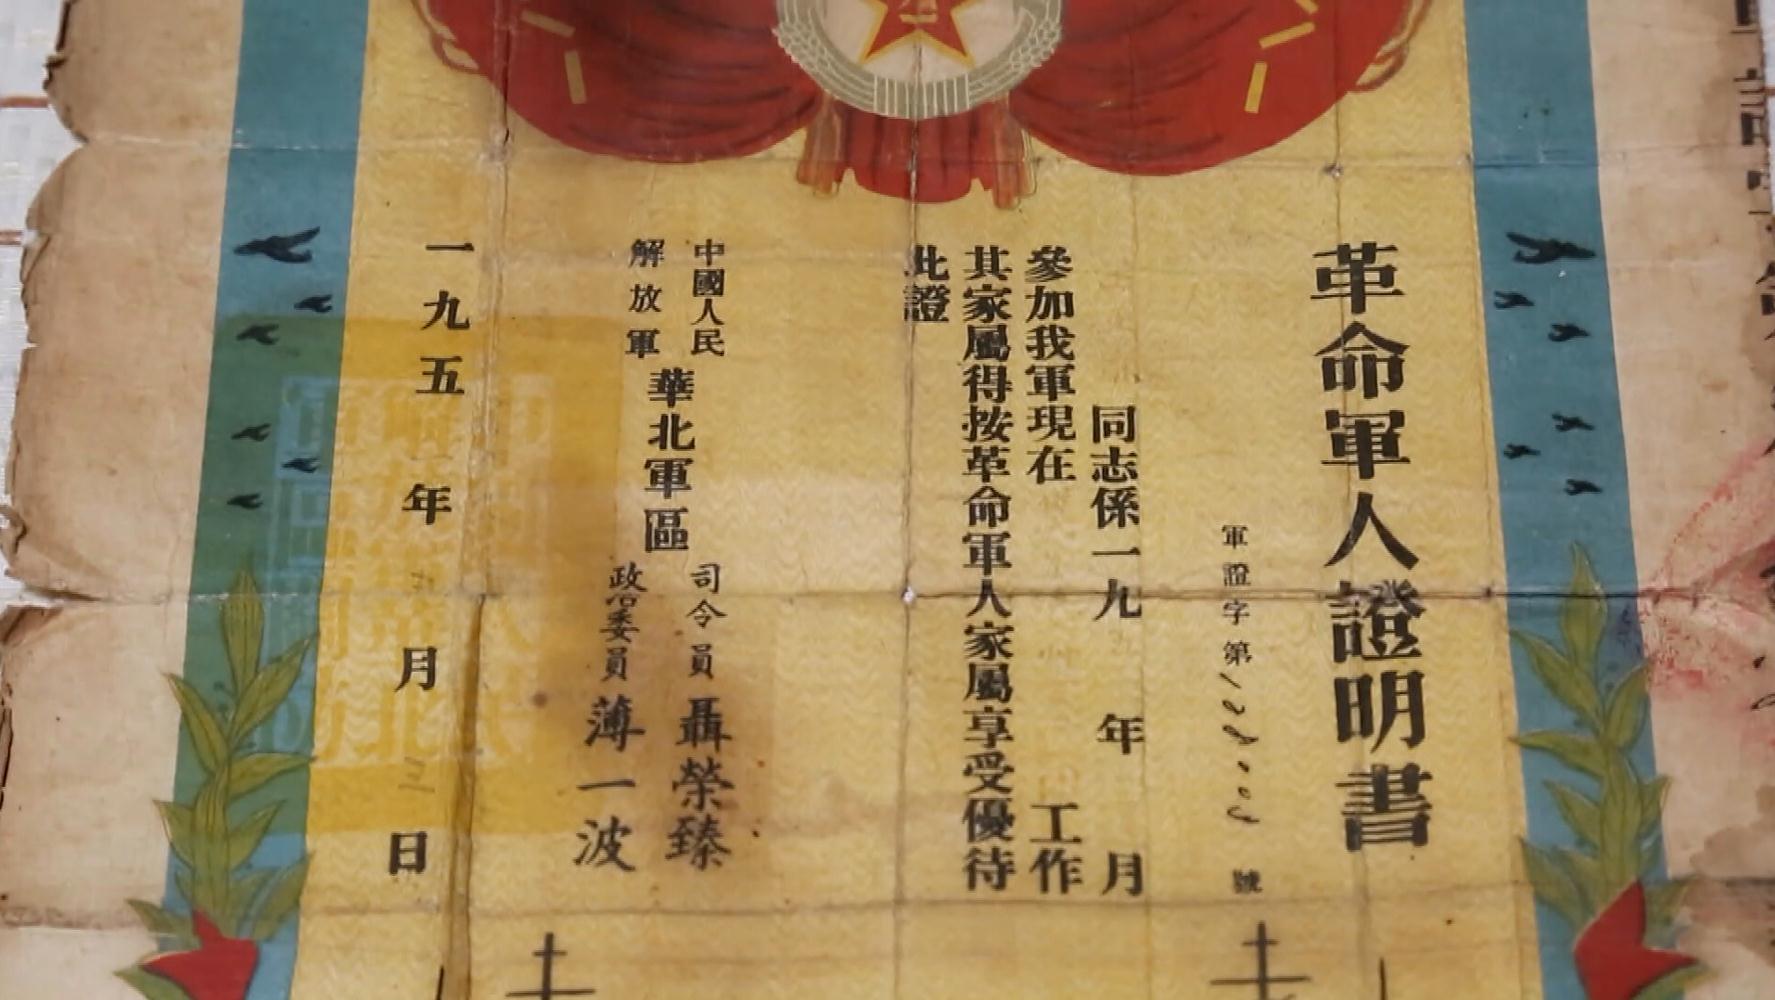 革命軍人證明書
軍證字第 號
同志係一九 年 月
參加我軍現在 工作
其家屬得按革命軍人家屬享受優待
此證
中國人民
解放軍
華北軍區
司令員 聶榮臻
政治委員 薄一波
一九五 年 月 日